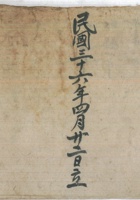 民國三十六年四月廿二日立